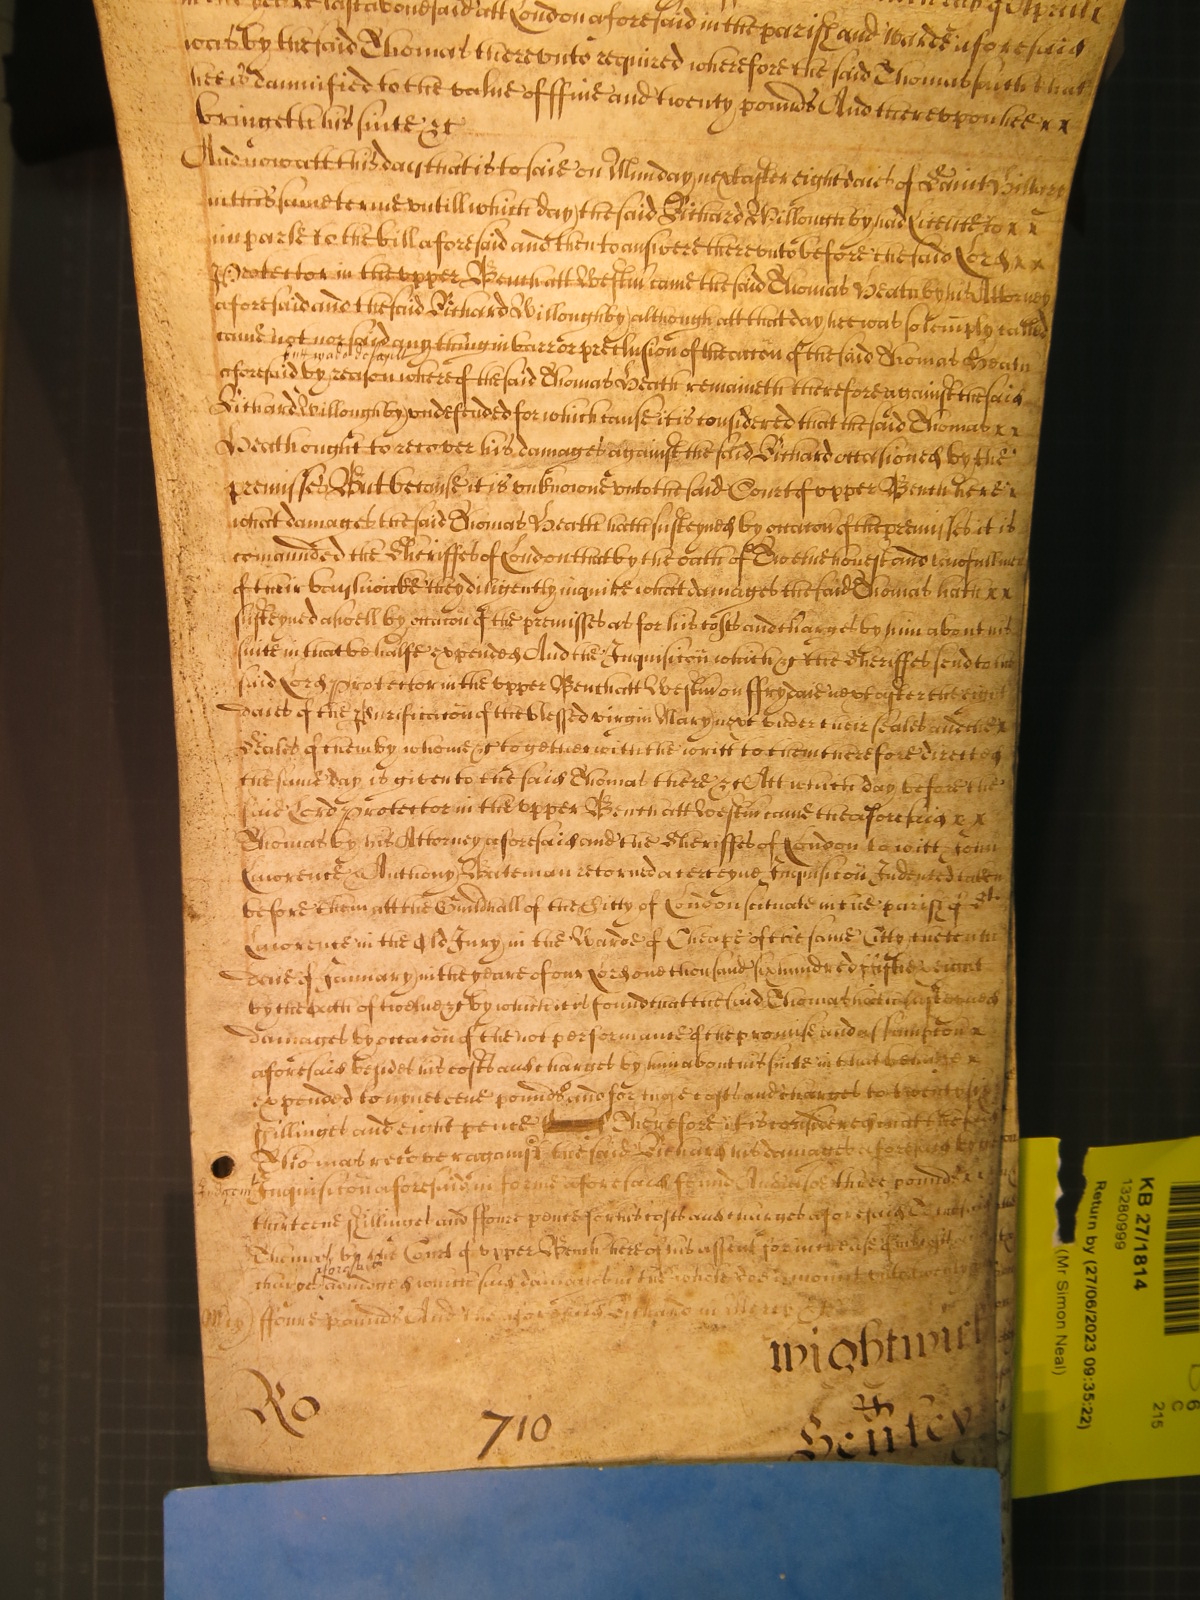 in the yeare last abovesaid att London aforesaid in the parish and Warde aforesaid
was by the said Thomas therevnto required wherefore the said Thomas saith that
hee is damnified to the value of ffive and twenty pounds And therevpon hee x x
bringeth his suite &c
And now att this day that is to said on Munday next after eight daies of Saint Hillary
in this same terme vntill which day the said Richard Willoughby had licence to x x
imparle to the bill aforesaid and then to answere therevnto before the said Lord x x
Protector in the vpper Bench att Westm came the said Thomas Heath by his Attorney
aforesaid and the said Richard Willoughby although att that day hee was solemply called
came not nor said any thing in barr or preclusion of the accon of the said Thomas Heath
but made default
aforesaid by reason whereof the said Thomas Heath remaineth therefore against the said
Richard Willoughby vndefended for which cause it is considered that the said Thomas x x
Heath ought to recover his damages against the said Richard occasioned by the
premisses But because it is vnknowne vnto the said Court of vpper Bench here x
what damages the said Thomas Heath hath susteyned by occacon of the premisses it is
comaunded the Sheriffes of London that by the oath of Twelve honest and lawfull men
of their bayliwicke they diligently inquire what damages the said Thomas hath x x
susteyned aswell by occacon of the premisses as for his costs and charges by him about his
suite in that behalfe expended And the Inquisicon which &c the Sheriffes send to the
said Lord Protector in the vpper Bench att Westm on ffryday next after the eight
daies of the Purificacon of the blessed virgin Mary next vnder their seales and the x
Seales of them by whome &c together with the writt to them therefore directed
the same day is given to the said Thomas there &c Att which day before the
said Lord Protector in the vpper Bench att Westm came the aforesaid x x
Thomas by his Attorney aforesaid and the Sheriffes of London to witt John
Lawrence & Anthony Bateman retorned a certeyne Inquisicon Indented taken
before them att the Guildhall of the Citty of London scituate in the parish of St
Lawrence in the Old Jury in the Warde of Cheape of the same Citty the tenth
daie of January in the yeare of our Lord one thousand six hundred fiftie eight
by the oath of twelve &c by which it is found that the said Thomas hath susteyned
damages by occacon of the not performance of the promise and assumpcon x
aforesaid besides his costs and charges by him about his suite in that behalfe x
expended to nyneteene pounds and for those costs and charges to twenty six
shillinges and eight pence Therefore it is considered that the said
Thomas recover against the said Richard his damages aforesaid by the
Judgemt Inquisicon aforesaid in forme aforesaid found And alsoe three pounds x x
thirteene shillinges and ffoure pence for his costs and charges aforesaid to the said
Thomas by the Court of vpper Bench here of his assent for increase
aforesaid
charges adiudged which said damages in the whole doe amount vnto twenty
Mcy ffoure pounds And the aforesaid Richard in mercy &c
Wightwick
Ro 710
Henley
KB 27/1814
13280999
Return by (27/06/2023 09:35:22)
(Mr Simon Neal)
C
215